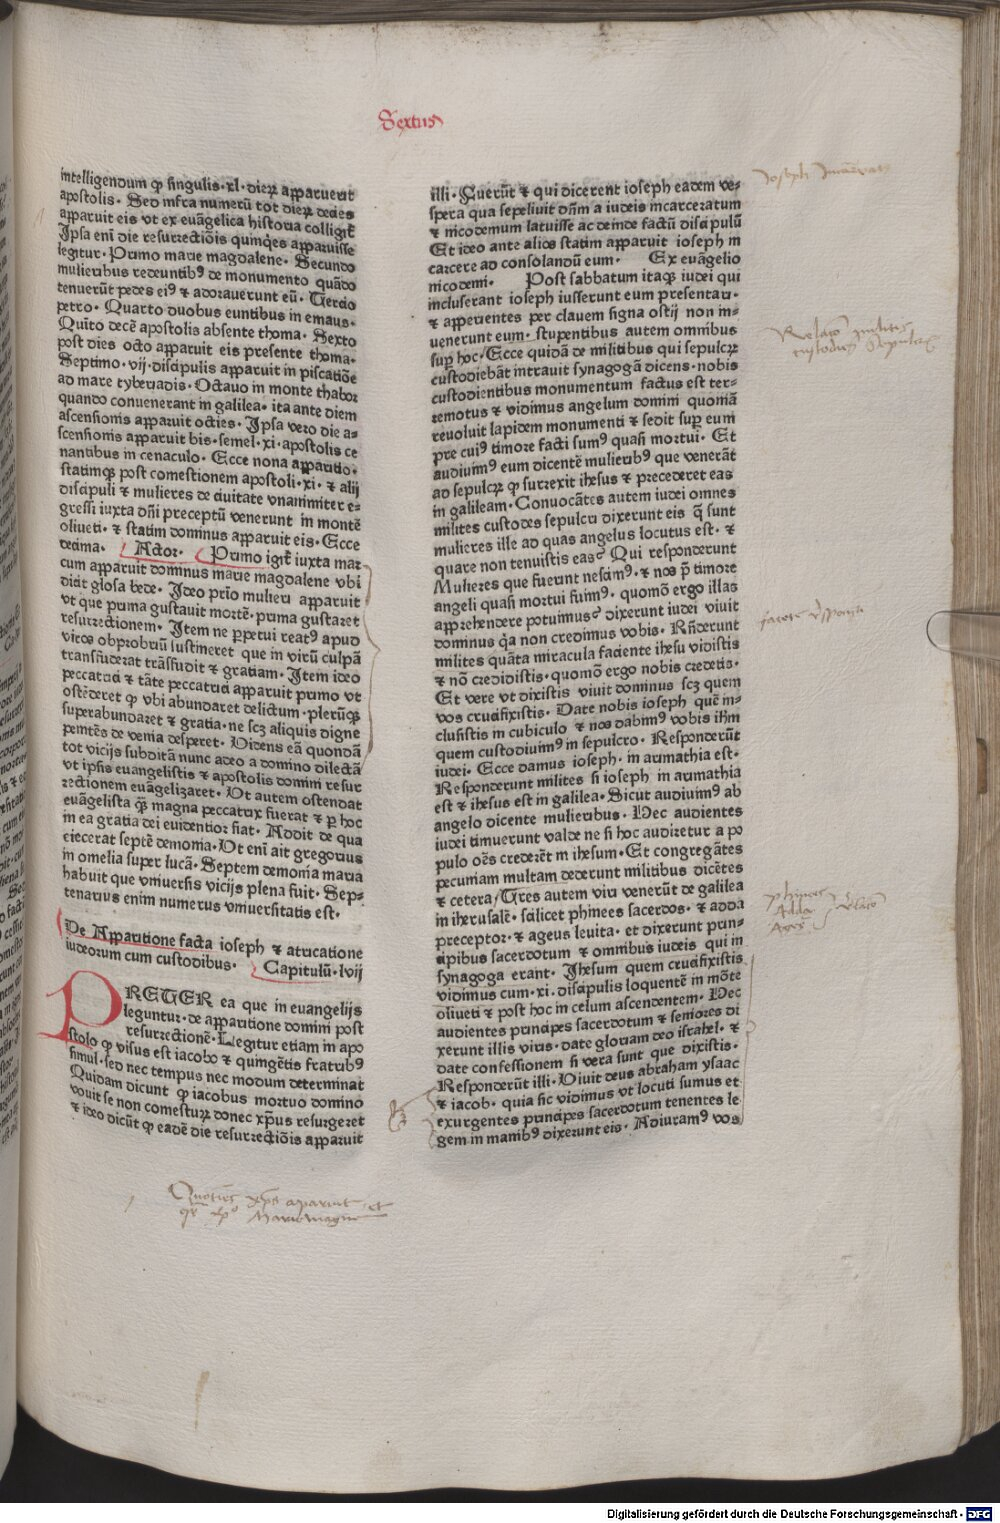 Sextus
intelligendum ꝙ singulis·xl·dieꝝ apparuerit
apostolis· Sed infra numerū tot dieꝝ decies
apparuit eis vt ex euāgelica historia colligit᷑
Ipsa enī die resurrectiōis quinq̄es apparuisse
legitur· Primo marie magdalene· Secundo
mulieribus redeuntibꝰ de monumento quādo
tenuerūt pedes eiꝰ ⁊ adorauerunt eū· Tercio
petro· Quarto duobus euntibus in emaus·
Quīto decē apostolis absente thoma· Sexto
post dies octo apparuit eis presente thoma·
Septimo·vij·discipulis apparuit in piscatiōe
ad mare tyberiadis· Octauo in monte thabor
quando conuenerant in galilea· ita ante diem
ascensionis apparuit octies· Ipsa vero die a-
scensionis apparuit bis·semel·xi·apostolis ce
nantibus in cenaculo· Ecce nona apparitio·
statimqꝫ post comestionem apostoli·xi·⁊ alij
discipuli ⁊ mulieres de ciuitate vnanimiter e-
gressi iuxta dn̄i preceptū venerunt in montē
oliueti·⁊ statim dominus apparuit eis· Ecce
decima· Actor· Primo igit᷑ iuxta mar
cum apparuit dominus marie magdalene vbi
dicit glosa bede· Ideo prīo mulieri apparuit
vt que prima gustauit mortē·prima gustaret
resurrectionem· Item ne ꝑpetui reatꝰ apud
viros obprobriū sustineret que in virū culpā
transfuderat trāsfudit ⁊ gratiam· Item ideo
peccatrici ⁊ tāte peccatrici apparuit primo vt
ostēderet ꝙ vbi abundaret delictum·plerūqꝫ
superabundaret ⁊ gratia·ne scꝫ aliquis digne
penitēs de venia desperet· Videns eā quondā
tot vicijs subditā nunc adeo a domino dilectā
vt ipsis euangelistis ⁊ apostolis domini resur
rectionem euāgelizaret· Vt autem ostendat
euāgelista qꝫ magna peccatrix fuerat ⁊ ꝑ hoc
in ea gratia dei euidentior fiat· Addit de qua
eiecerat septē demonia· Vt enī ait gregorius
in omelia super lucā· Septem demonia maria
habuit que vniuersis vicijs plena fuit· Sep-
tenarius enim numerus vniuersitatis est·
De Apparitione facta ioseph ⁊ atrictatione
iudeorum cum custodibus· Capitulū·lvij
PRETER ea que in euangelijs
leguntur·de apparitione domini post
resurrectionē·Legitur etiam in apo
stolo ꝙ visus est iacobo ⁊ quingētis fratribꝰ
simul·sed nec tempus nec modum determinat
Quidam dicunt ꝙ iacobus mortuo domino
vouit se non comesturꝝ donec xp̄us resurgeret
⁊ ideo dicūt ꝙ eadē die resurrectiōis apparuit
Quotiēs xp̄s aparuit et
qr̄ xp̄o Marie magne
illi· Fuerūt ⁊ qui dicerent ioseph eadem ve-
spera qua sepeliuit dn̄m a iudeis incarceratum
⁊ nicodemum latuisse ac deinde factū discipulū
Et ideo ante alios statim apparuit ioseph in
carcere ad consolandū eum· Ex euāgelio
nicodemi· Post sabbatum itaqꝫ iudei qui
incluserant ioseph iusserunt eum presentari·
⁊ apperientes per clauem signa ostij non in-
uenerunt eum·stupentibus autem omnibus
suꝑ hoc·Ecce quidā de militibus qui sepulcꝝ
custodiebāt intrauit synagogā dicens·nobis
custodientibus monumentum factus est ter-
remotus ⁊ vidimus angelum domini quomō
reuoluit lapidem monumenti ⁊ sedit suꝑ eum
pre cuiꝰ timore facti sumꝰ quasi mortui· Et
audiuimꝰ eum dicentē mulieribꝰ que venerāt
ad sepulcꝝ ꝙ surrexit ihesus ⁊ precederet eas
in galileam·Conuocātes autem iudei omnes
milites custodes sepulcri dixerunt eis q̄ sunt
mulieres ille ad quas angelus locutus est·⁊
quare non tenuistis eas? Qui responderunt
Mulieres que fuerint nescimꝰ·⁊ nos p̄ timore
angeli quasi mortui fuimꝰ·quomō ergo illas
apprehendere potuimus? dixerunt iudei viuit
dominus q̄a non credimus vobis· Rn̄derunt
milites quāta miracula faciente ihesu vidistis
⁊ nō credidistis·quomō ergo nobis credetis·
Et vere vt dixistis viuit dominus scꝫ quem
vos crucifixistis· Date nobis ioseph quē in-
clusistis in cubiculo ⁊ nos dabimꝰ vobis ihm̄
quem custodiuimꝰ in sepulcro· Responderūt
iudei· Ecce damus ioseph·in arimathia est·
Responderunt milites si ioseph in arimathia
est ⁊ ihesus est in galilea·Sicut audiuimꝰ ab
angelo dicente mulieribus· Hec audientes
iudei timuerunt valde ne si hoc audiretur a po
pulo oēs crederēt in ihesum· Et congregātes
pecuniam multam dederunt militibus dicētes
⁊ cetera/Tres autem viri venerūt de galilea
in iherusalē· scilicet phinees sacerdos·⁊ adda
preceptor·⁊ ageus leuita·et dixerunt prin-
cipibus sacerdotum ⁊ omnibus iudeis qui in
synagoga erant· Ihesum quem crucifixistis
vidimus cum·xi·discipulis loquentē in mōte
oliueti ⁊ post hoc in celum ascendentem· Hec
audientes principes sacerdotum ⁊ seniores di
xerunt illis viris·date gloriam deo israhel·⁊
date confessionem si vera sunt que dixistis·
Responderūt illi·Viuit deus abraham ysaac
⁊ iacob·quia sic vidimus vt locuti sumus et
exurgentes principes sacerdotum tenentes le
gem in manibꝰ dixerunt eis· Adiuramꝰ vos
Relato militis
custodis sepulcri
phinees
Adda
Ageꝰ
Digitalisierung gefördert durch die Deutsche Forschungsgemeinschaft - DFG